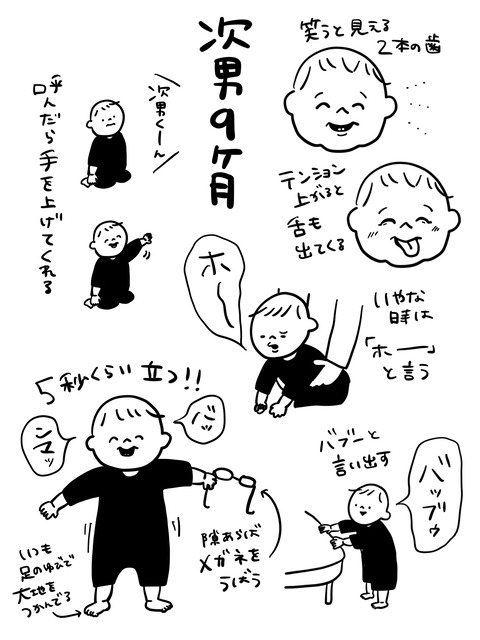 次男9ヶ月
笑うと見える
2本の歯
次男くーん
呼んだら手を上げてくれる
テンション
上がると
舌も
出てくる
ホ〜
いやな
時は
「ホー」
と言う
5秒くらい立つ!!
バッ
シマッ
隙あらば
メガネを
うばう
いつも
足のゆびで
大地を
つかんでる
バブーと
言い出す
バッブゥ